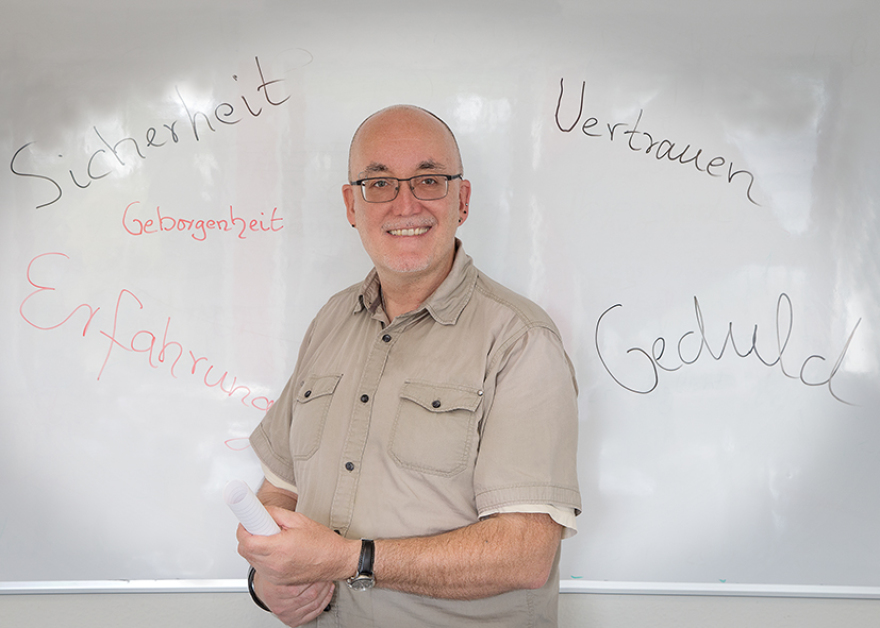 Sicherheit
Vertrauen
Geborgenheit
Erfahrung
Geduld